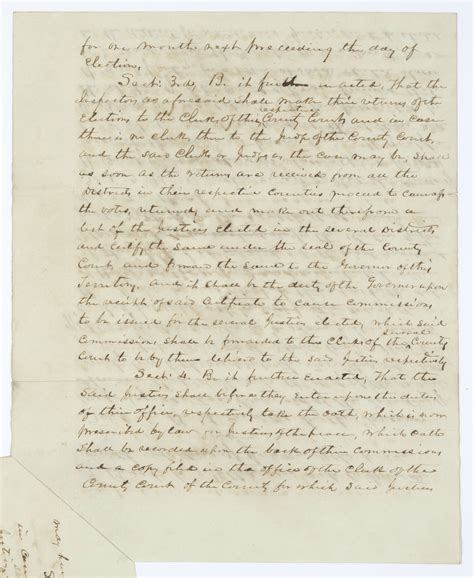 for one month next preceeding the day of
Election,
Sect: 3rd, Be it further enacted, that the
Inspectors as aforesaid shall make their returns of the
respective
Elections to the Clerks, of the County Courts and in case
there is no Clerk, then to the Judge of the County Court,
and the said Clerks or Judges as the case may be, shall
as soon as the returns are received from all the
Districts in their respective Counties proceed to canvass
the votes, returned, and make out therefrom a
list of the Justices elected in the several Districts
and certify the same under the seal of the County
Court and forward the same to the Governor of this
Territory, and it shall be the duty of the Governor upon
the receipt of said Certificate to cause Commissions
to be issued for the several Justices elected, which said
several
Commissions shall be forwarded to the Clerks of the County
Court to be by them deliver to the said Justices respectively
Sect: 4. Be it further enacted, that the
said Justices shall before they enter upon the duties
of their office, respectively take the oath, which is now
prescribed by law for Justices of the peace, which oath
shall be recorded upon the back of their Commissions
and a copy filed in the office of the Clerk of the
County Court of the County for which said Justices
may
in case